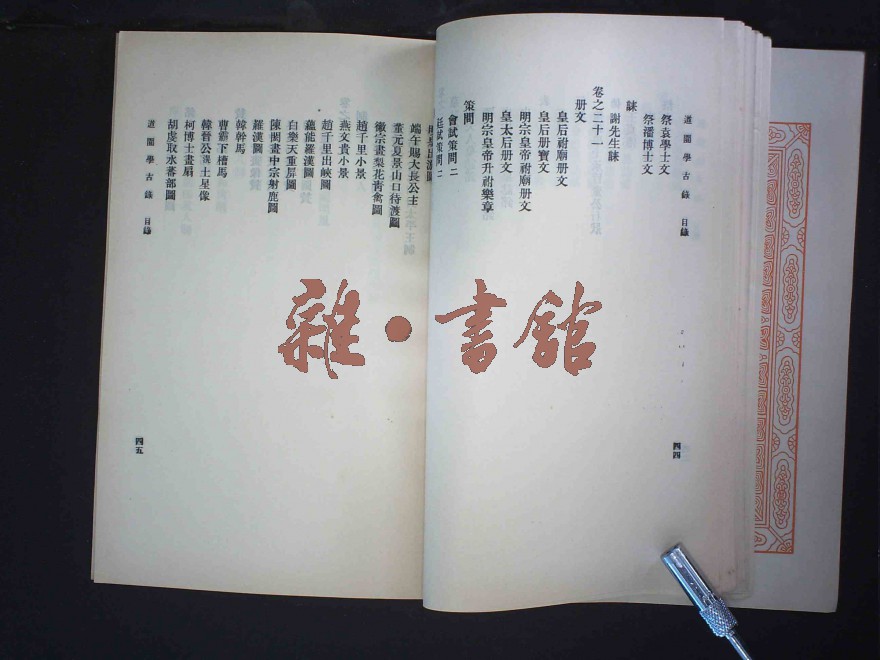 道園學古錄 目錄
祭袁學士文
祭潘博士文
誄
謝先生誄
卷之二十一
册文
皇后祔廟册文
皇后册寶文
皇太后册文
明宗皇帝祔廟册文
明宗皇帝升祔樂章
策問
會試策問二
廷試策問二
四四
端午賜大長公主
董元夏景山口待渡圖
徽宗畫梨花青禽圖
趙千里小景
燕文貴小景
趙千里出峽圖
蘊能羅漢圖
白樂天重屏圖
陳閎畫中宗射鹿圖
羅漢圖
韓幹馬
曹霸下槽馬
韓晉公土星像
柯博士畫扇
胡虔取水蕃部圖
道園學古錄 目錄
四五
雜·書館